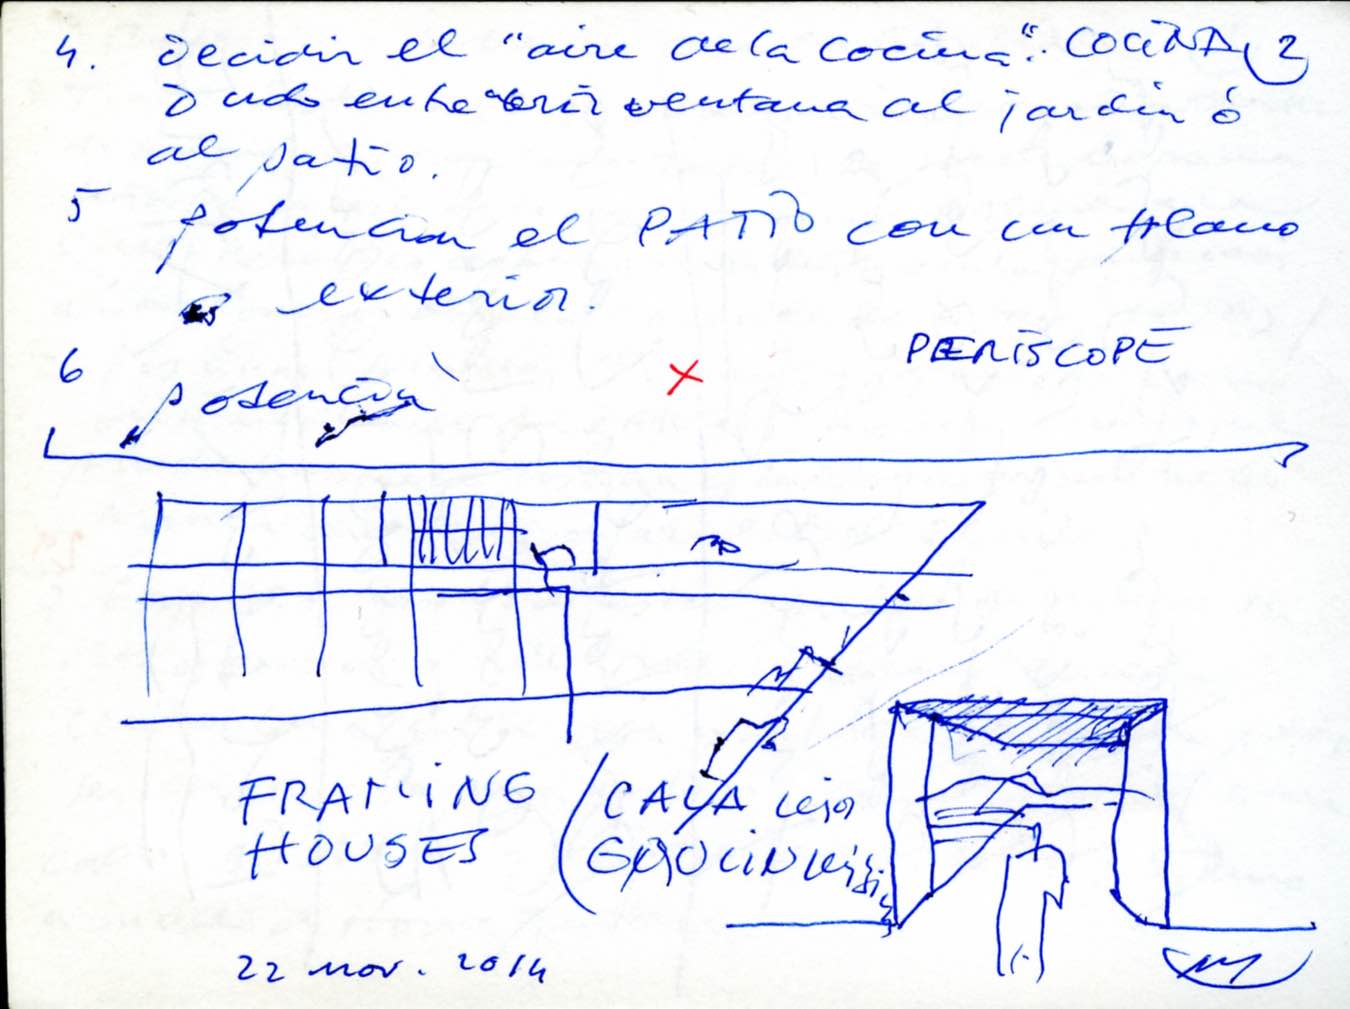 4. Decidir el "aire de la cocina". COCINA 2
Dudo entre abrir ventana al jardin ó
al patio.
5 potenciar el PATIO con un plano
exterior.
PERISCOPE
6 potenciar
FRAMING
HOUSES
(CALA
22 nov. 2014